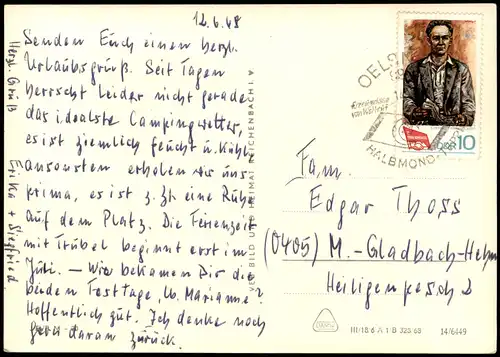 12.6.68
Senden Euch einen herzl.
Urlaubsgruß. Seit Tagen
herrscht leider nicht gerade
das idealste Campingwetter,
es ist ziemlich feucht u. kühl,
ansonsten erholen wir uns
prima, es ist z. Zt. eine Ruhe
auf dem Platz. Die Ferienzeit
mit Trubel beginnt erst im
Juli. – Wie bekamen Dir die
beiden Festtage, lb. Marianne?
Hoffentlich gut. Ich denke noch
gern daran zurück.
Herzl. Gruß
Erika + Siegfried
VEB BILD UND HEIMAT REICHENBACH I. V.
OELS
HALBMOND-
DDR 10
Fam.
Edgar Thoss
(0405) M.-Gladbach-Hehn
Heiligenpesch 2
III/18/6 A 1 B 328/68 14/6449